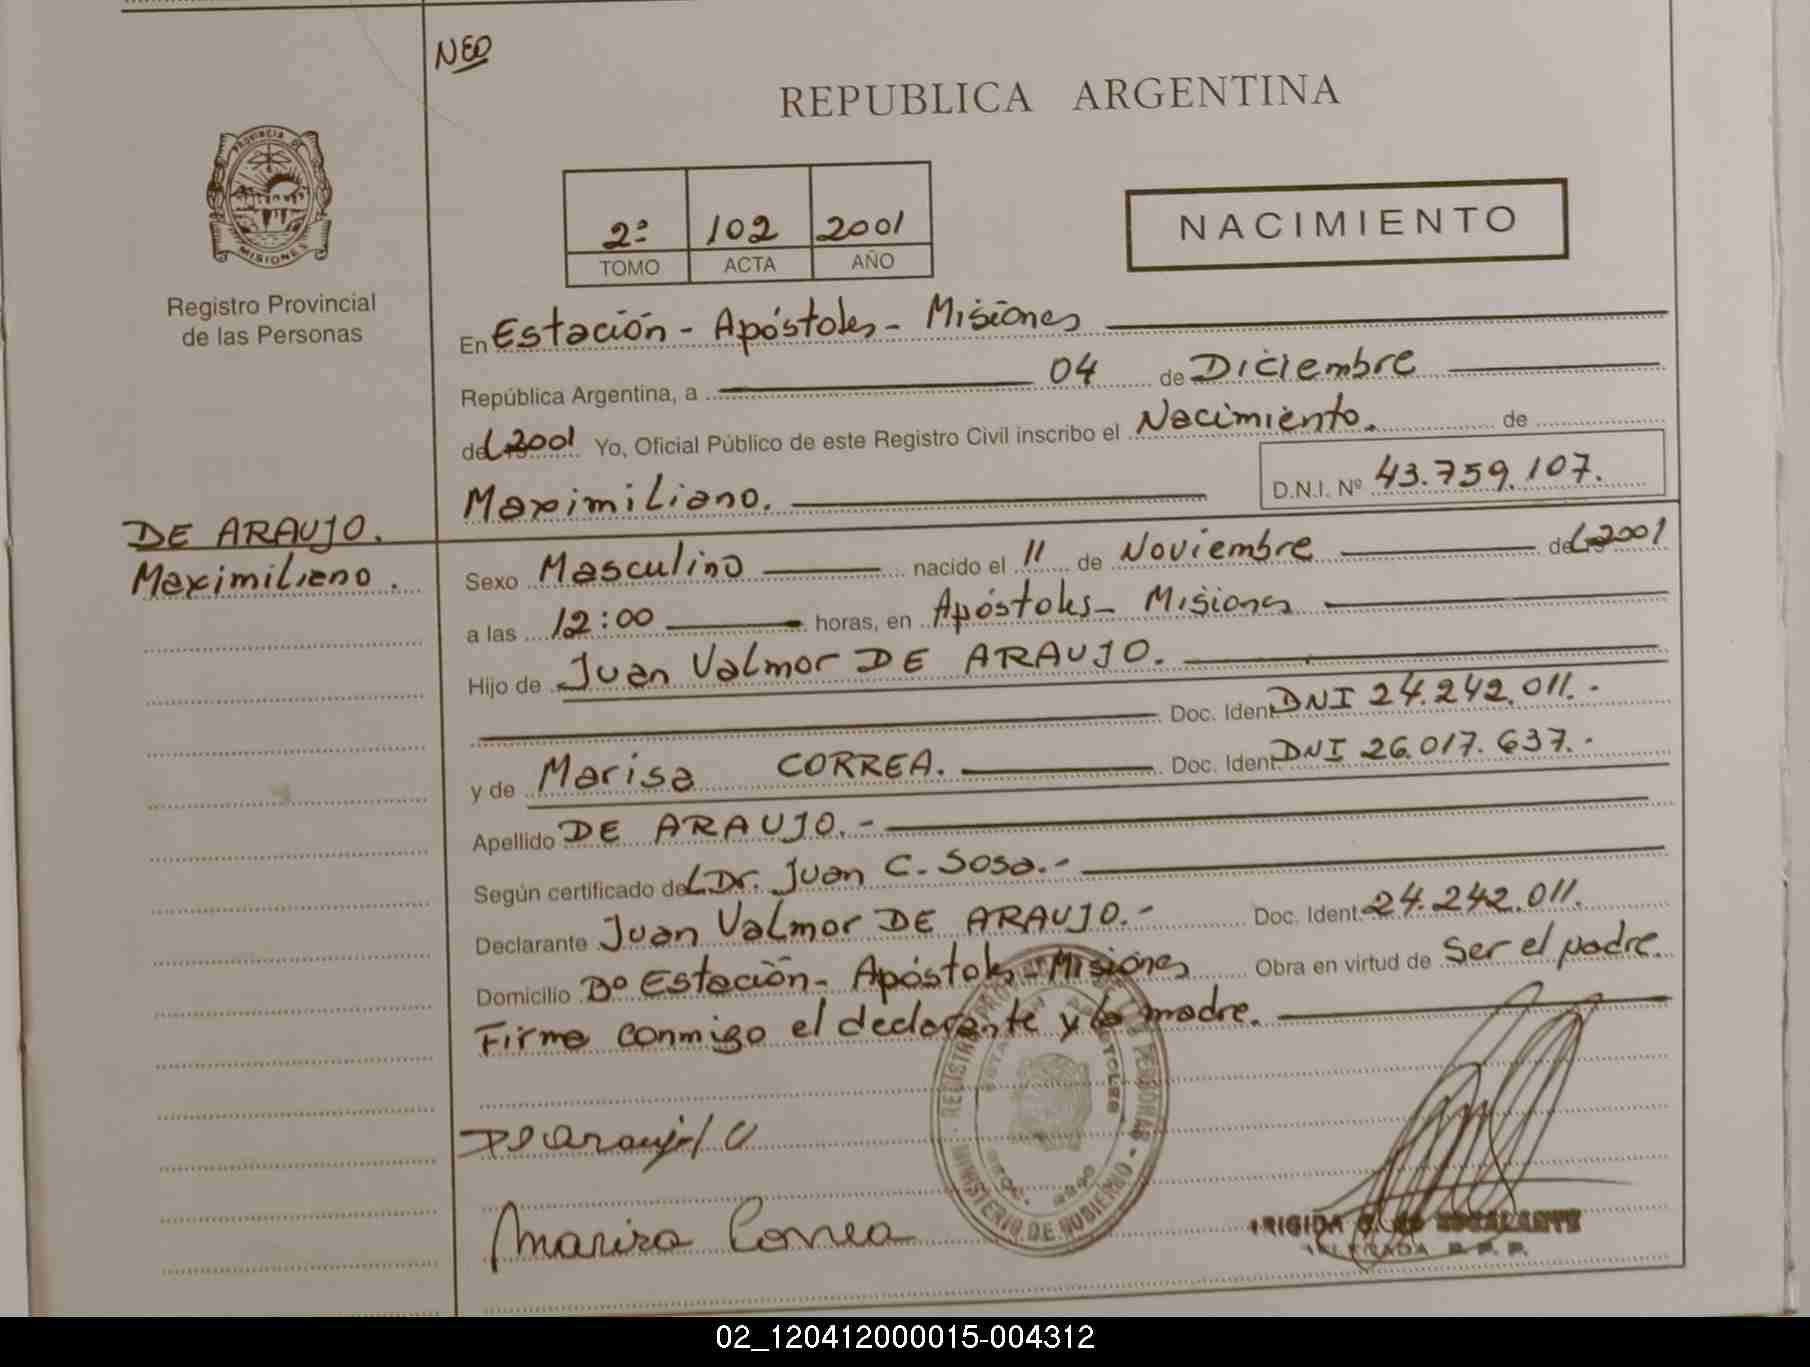 NEO
REPUBLICA ARGENTINA
PROVINCIA DE
MISIONES
2º 102 2001
TOMO ACTA AÑO
NACIMIENTO
Registro Provincial
de las Personas
En Estación - Apóstoles - Misiones
República Argentina, a 04 de Diciembre
del 2001 Yo, Oficial Público de este Registro Civil inscribo el Nacimiento. de
Maximiliano. D.N.I. Nº 43.759.107.
DE ARAUJO.
Maximiliano.
Sexo Masculino nacido el 11 de Noviembre del 2001
a las 12:00 horas, en Apóstoles - Misiones
Hijo de Juan Valmor DE ARAUJO.
Doc. Ident. DNI 24.242.011.-
y de Marisa CORREA. Doc. Ident. DNI 26.017.637.-
Apellido DE ARAUJO.-
Según certificado del Dr. Juan C. Sosa.-
Declarante Juan Valmor DE ARAUJO.- Doc. Ident. 24.242.011.
Domicilio Bº Estación - Apóstoles - Misiones Obra en virtud de Ser el padre.
Firma conmigo el declarante y la madre.
REGISTRO DE LAS PERSONAS
MINISTERIO DE GOBIERNO
De Araujo J V
Marisa Correa
DELEGADA R. P. P.
02_120412000015-004312